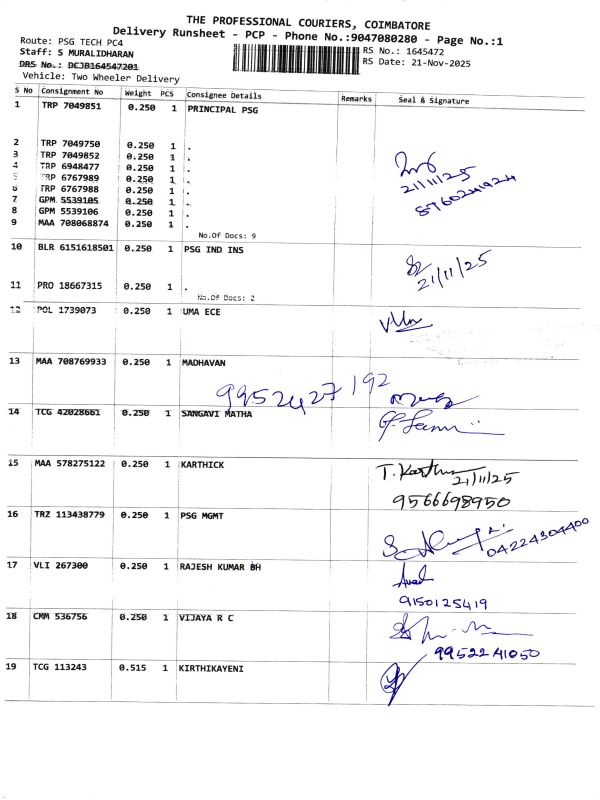 THE PROFESSIONAL COURIERS, COIMBATORE
Delivery Runsheet - PCP - Phone No.:9047080280 - Page No.:1
Route: PSG TECH PC4
Staff: S MURALIDHARAN
RS No.: 1645472
DRS No.: DCJB164547201
RS Date: 21-Nov-2025
Vehicle: Two Wheeler Delivery
S No Consignment No Weight PCS Consignee Details Remarks Seal & Signature
1 TRP 7049851 0.250 1 PRINCIPAL PSG
2 TRP 7049750 0.250 1 .
3 TRP 7049852 0.250 1 .
4 TRP 6948477 0.250 1 .
5 TRP 6767989 0.250 1 .
21/11/25
6 TRP 6767988 0.250 1 .
8760241924
7 GPM 5539105 0.250 1 .
8 GPM 5539106 0.250 1 .
9 MAA 708068874 0.250 1 .
No.Of Docs: 9
10 BLR 6151618501 0.250 1 PSG IND INS
21/11/25
11 PRO 18667315 0.250 1 .
No.Of Docs: 2
12 POL 1739073 0.250 1 UMA ECE
13 MAA 708769933 0.250 1 MADHAVAN
9952427192
14 TCG 42028661 0.250 1 SANGAVI MATHA
15 MAA 578275122 0.250 1 KARTHICK
21/11/25
9566698950
16 TRZ 113438779 0.250 1 PSG MGMT
04224304400
17 VLI 267300 0.250 1 RAJESH KUMAR BH
9150125419
18 CMM 536756 0.250 1 VIJAYA R C
9952241050
19 TCG 113243 0.515 1 KIRTHIKAYENI